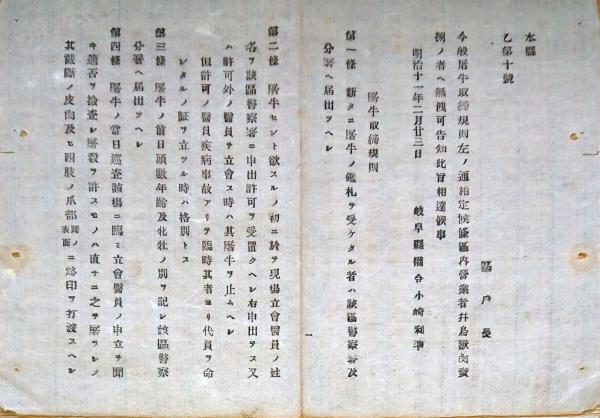 本縣
乙第十號
區戶長
今般屠牛取締規則左ノ通相定候條區內營業者幷鳥獸肉賣
捌ノ者ヘ無洩可告知此旨相達候事
明治十一年二月廿三日
岐阜縣權令小崎利準
屠牛取締規則
第一條 新タニ屠牛ノ鑑札ヲ受ケタル者ハ該區警察署及
分署ヘ屆出ツヘシ
一
第二條 屠牛セント欲スルノ初ニ於テ現塲立會醫員ノ姓
名ヲ該區警察署ニ申出許可ヲ受置クヘシ右申出テス又
ハ許可外ノ醫員ヲ立會ス時ハ其屠牛ヲ止ムヘシ
但許可ノ醫員疾病事故アリテ臨時其者ヨリ代員ヲ命
シタルノ証ヲ立ツル時ハ格別トス
第三條 屠牛ノ前日頭數年齡及牝牡ノ別ヲ記シ該區警察
分署ヘ屆出ツヘシ
第四條 屠牛ノ當日巡査該塲ニ臨ミ立會醫員ノ申立テ聞
キ適否ヲ檢査シ屠殺ヲ許スモノハ直チニ之ヲ屠ラシメ
其截斷ノ皮肉及ヒ四肢ノ爪部蹄ノ表面ニ烙印ヲ打渡スヘシ